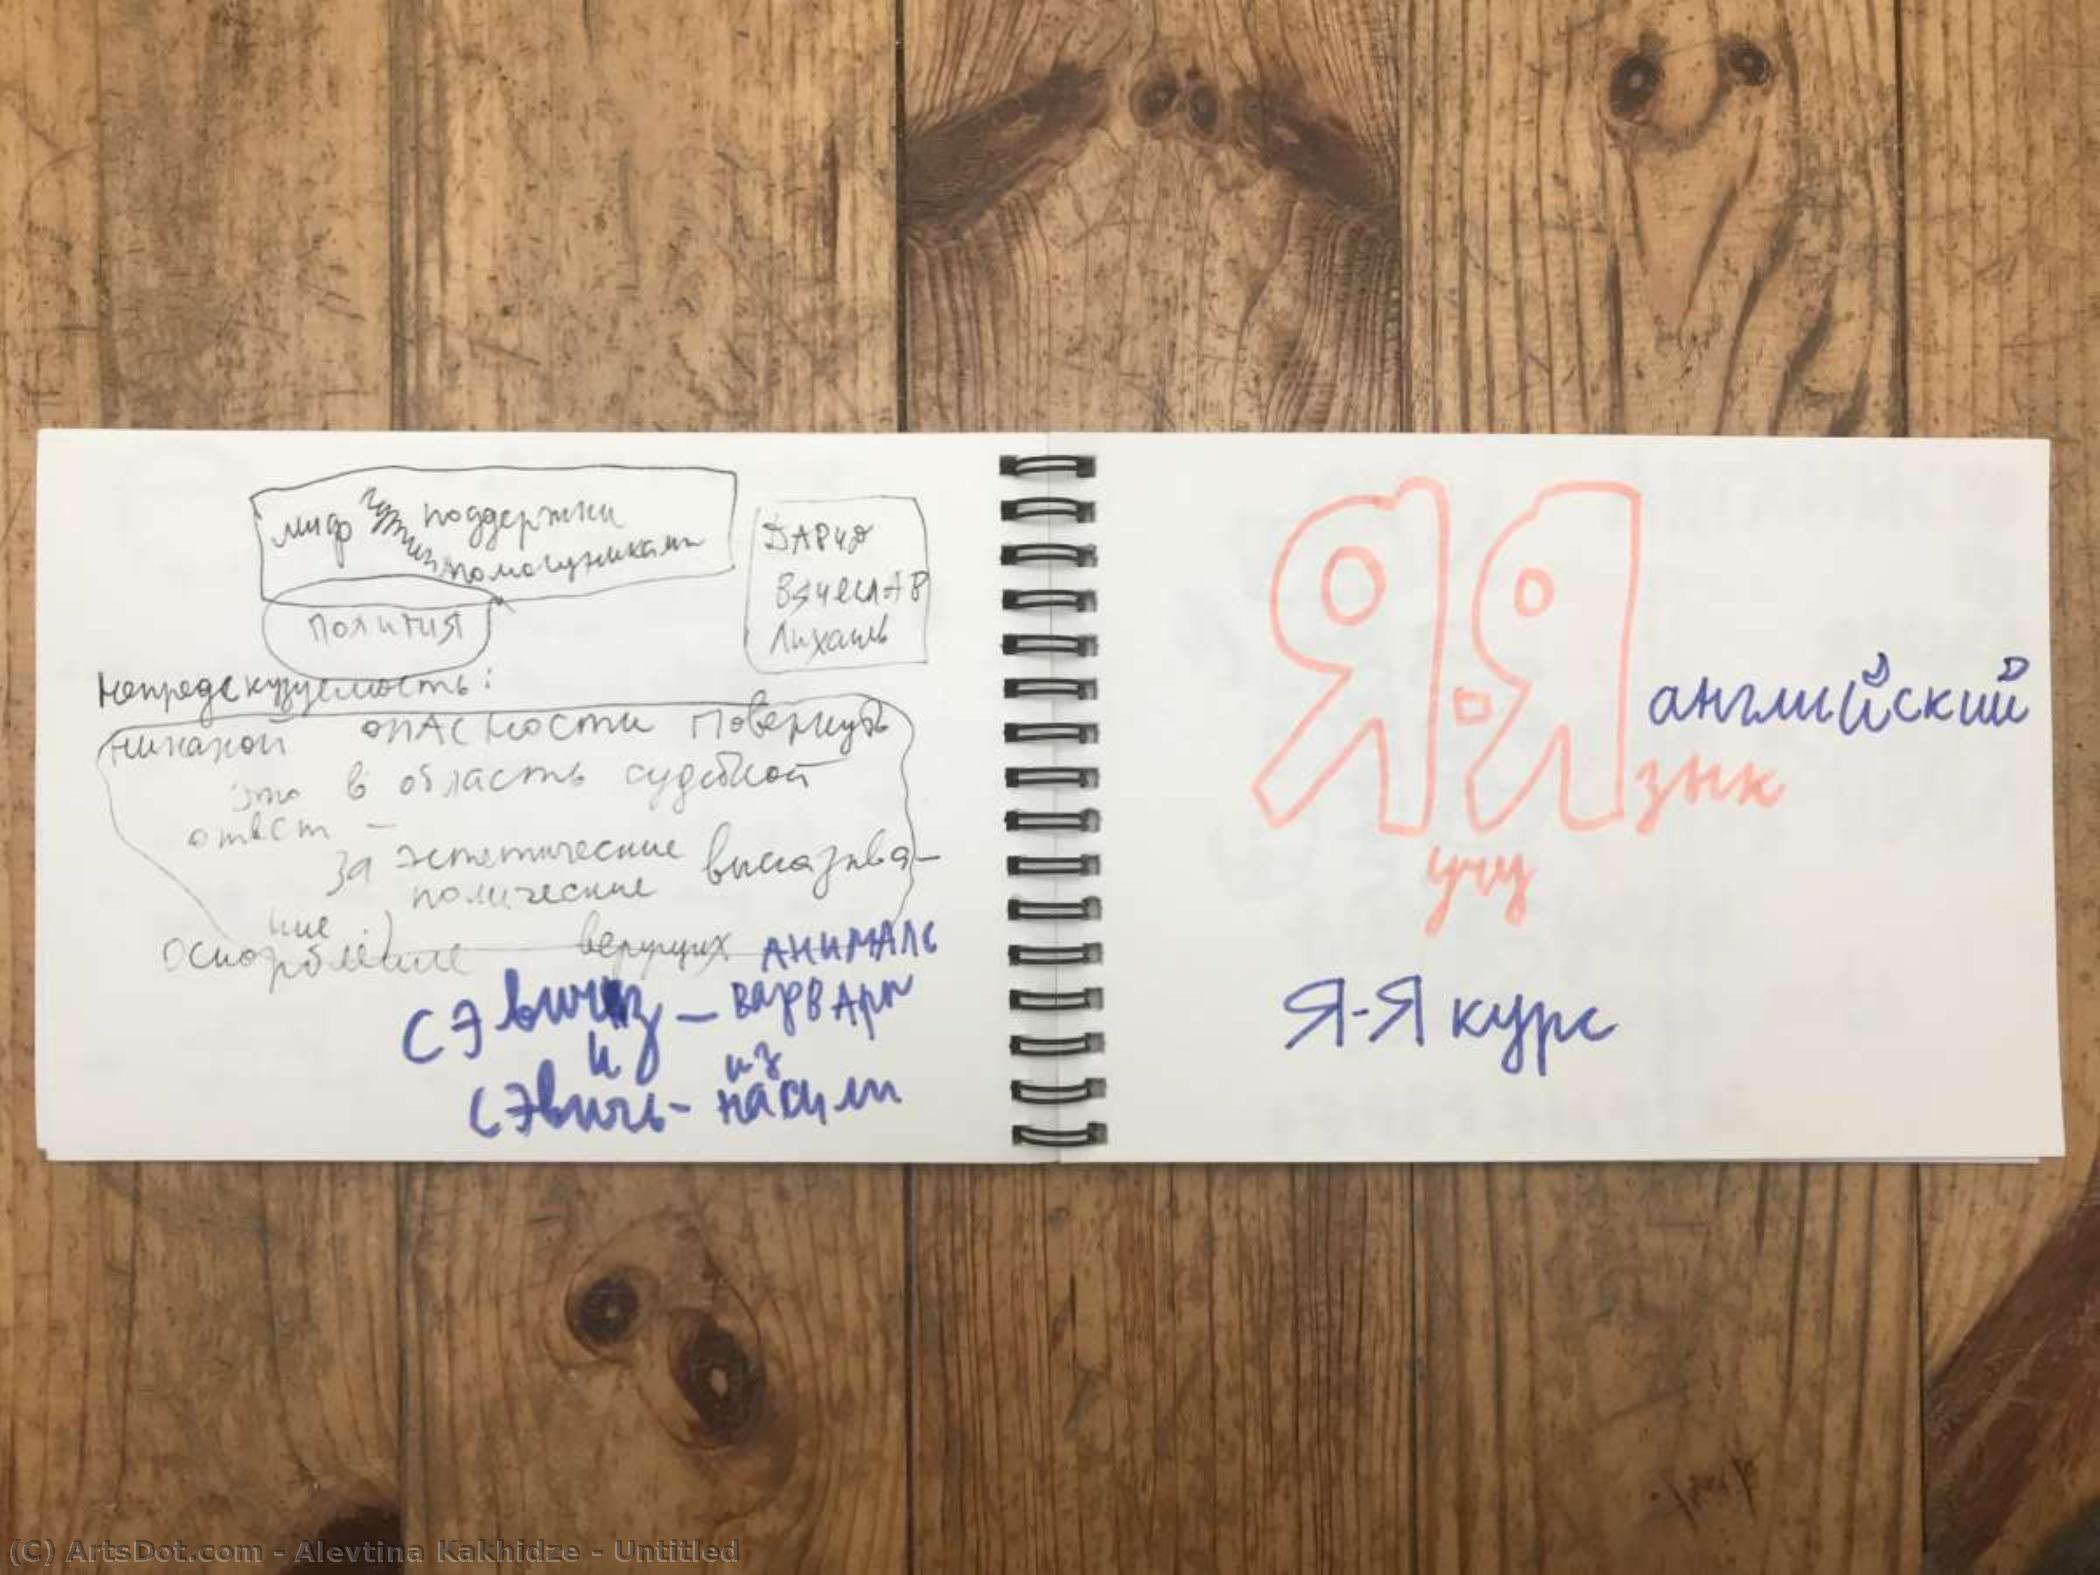 миф поддержки
ПОЛИТИЯ
ДАРЧО
ВЯЧЕСЛАВ
Непредсказуемость:
никакой опасности повернуть
это в область судебной
ответ –
за эстетические высказыва-
полические
ние
оскорбление верующих
АНИМАЛС
СЭвич – ВАРВАРЫ
и из
СЭвичь -
Я-Я английский
зык
учу
Я-Я курс
(C) ArtsDot.com - Alevtina Kakhidze - Untitled